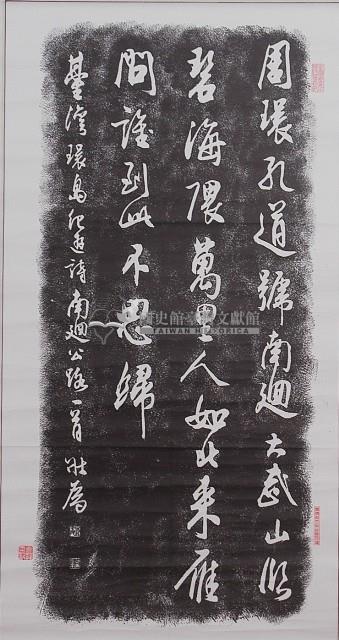 周環孔道號南廻大武山臨
碧海隈萬里人如北來雁
問誰到此不思歸
臺灣環島紀遊詩南廻公路一首 壯為
國史館臺灣文獻館
TAIWAN HISTORICA